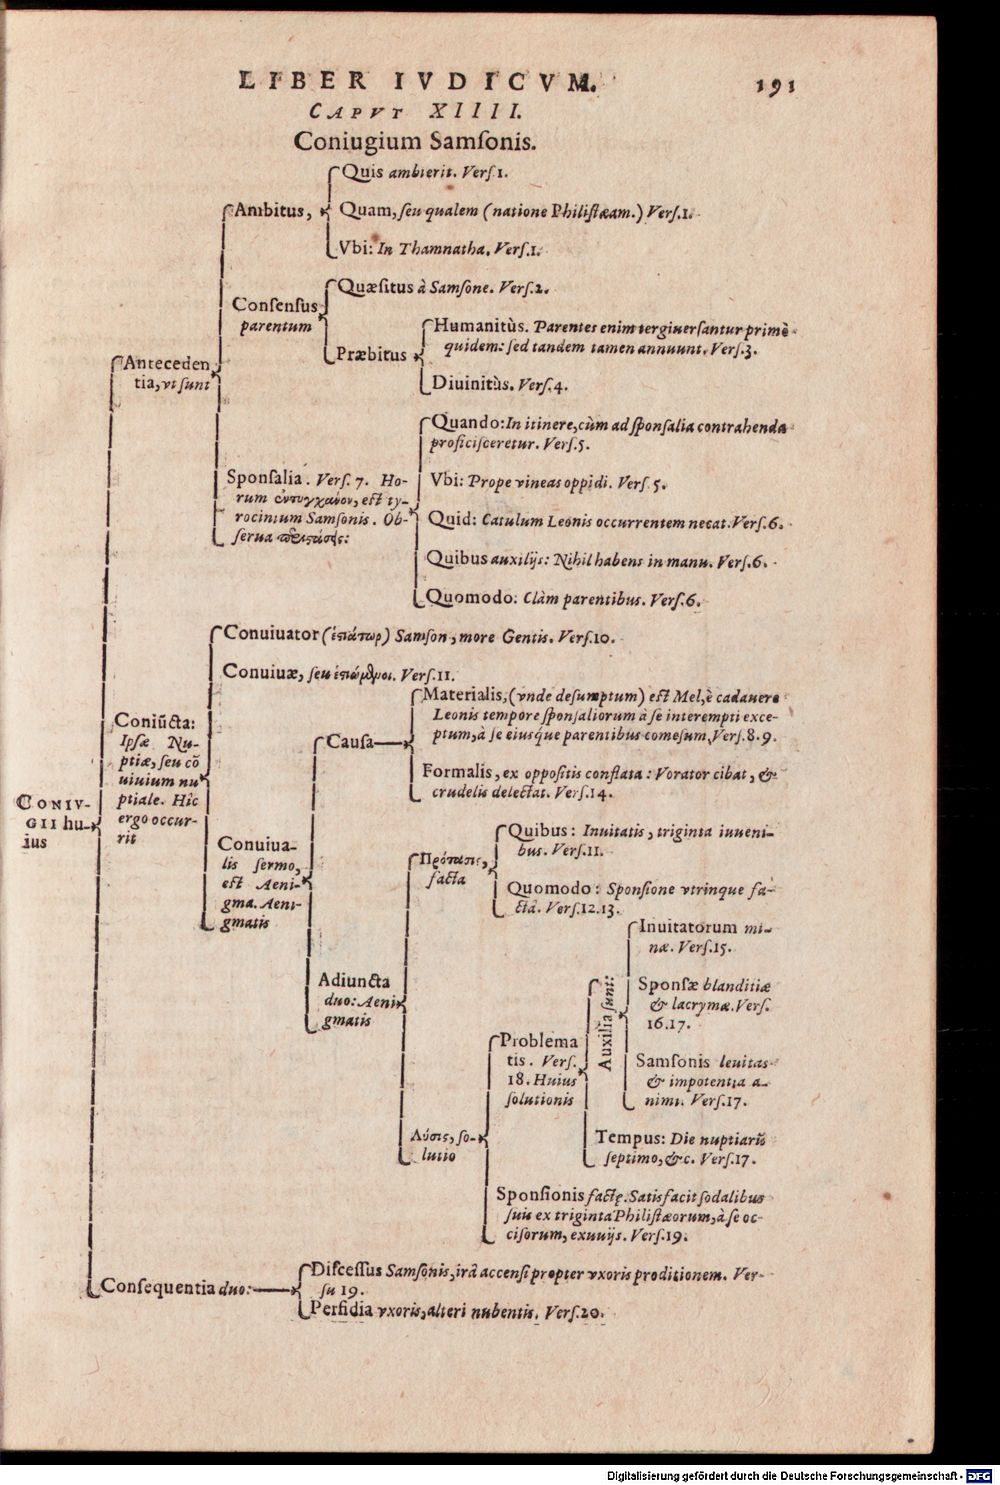 LIBER IVDICVM. 191
CAPVT XIIII.
Coniugium Samſonis.
Quis ambierit. Verſ 1.
Ambitus,
Quam, ſeu qualem (natione Philiſtæam.) Verſ.1.
Vbi: In Thamnatha. Verſ.1.
Quæſitus à Samſone. Verſ.2.
Conſenſus
parentum
Humanitùs. Parentes enim tergiuerſantur primò
quidem: ſed tandem tamen annuunt. Verſ.3.
Præbitus
Diuinitùs. Verſ.4.
Anteceden
tia, vt ſunt
Quando: In itinere, cùm ad ſponſalia contrahenda
proficiſceretur. Verſ.5.
Sponſalia. Verſ. 7. Ho-
rum ἐντυγχάνον, eſt ty-
rocinium Samſonis. Ob-
ſerua
Vbi: Prope vineas oppidi. Verſ. 5.
Quid: Catulum Leonis occurrentem necat. Verſ.6.
Quibus auxilijs: Nihil habens in manu. Verſ.6.
Quomodo: Clàm parentibus. Verſ.6.
Conuiuator (ἑστιάτωρ) Samſon, more Gentis. Verſ.10.
Conuiuæ, ſeu ἑστιώμενοι. Verſ.11.
Materialis, (vnde deſumptum) eſt Mel, è cadauere
Leonis tempore ſponſaliorum à ſe interempti exce-
ptum, à ſe eiusque parentibus comeſum, Verſ.8.9.
Cauſa
Formalis, ex oppoſitis conflata: Vorator cibat, &
crudelis delectat. Verſ.14.
Coniũcta:
Ipſæ Nu-
ptiæ, ſeu cõ
uiuium nu
ptiale. Hîc
ergo occur-
rit
CONIV-
GII hu-
ius
Conuiua-
lis ſermo,
eſt Aeni-
gma. Aeni-
gmatis
Quibus: Inuitatis, triginta iuueni-
bus. Verſ.11.
Πρότασις,
facta
Quomodo: Sponſione vtrinque fa-
ctâ. Verſ.12.13.
Adiuncta
duo: Aeni
gmatis
Inuitatorum mi-
næ. Verſ.15.
Auxilia ſunt:
Sponſæ blanditiæ
& lacrymæ. Verſ.
16.17.
Samſonis leuitas
& impotentia a-
nimi. Verſ.17.
Problema
tis. Verſ.
18. Huius
ſolutionis
Tempus: Die nuptiarũ
ſeptimo, &c. Verſ.17.
Λύσις, ſo-
lutio
Sponſionis factę. Satisfacit ſodalibus
ſuis ex triginta Philiſtæorum, à ſe oc-
ciſorum, exuuijs. Verſ.19.
Conſequentia duo:
Diſceſſus Samſonis, irâ accenſi propter vxoris proditionem. Ver-
ſu 19.
Perfidia vxoris, alteri nubentis. Verſ.20.
Digitalisierung gefördert durch die Deutsche Forschungsgemeinschaft - DFG